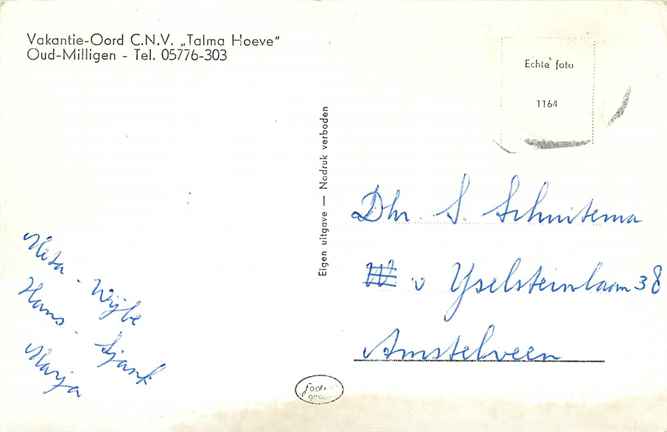 Vakantie-Oord C.N.V. „Talma Hoeve"
Oud-Milligen - Tel. 05776-303
Echte foto
1164
Eigen uitgave — Nadruk verboden
Dhr. S. Schuitema
v Yselsteinlaan 38
Amstelveen
Wijbe
Hans - Sjank
Marja